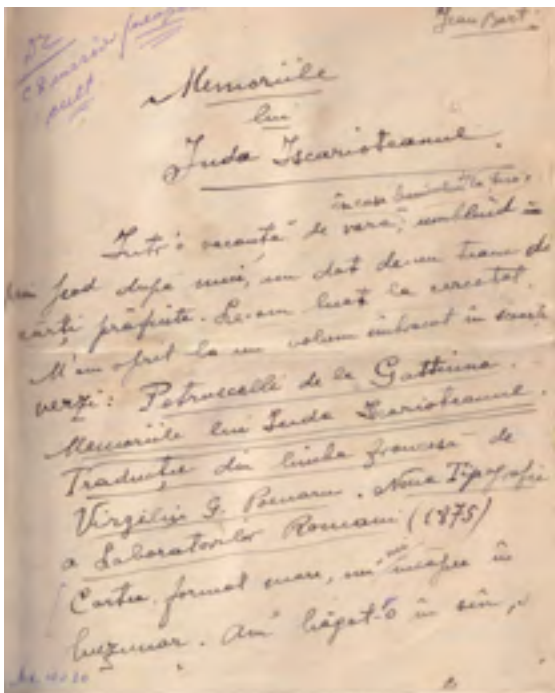 Jean Bart
Memoriile
lui
Juda Iscarioteanul.
în casa bunicului la țară,
Într'o vacanță de vară, umblând în
pod după nuci, am dat de un teanc de
cărți prăfuite. Le-am luat la cercetat.
M'am oprit la un volum îmbrăcat în scoarțe
verzi: Petruccelli de la Gattina.
Memoriile lui Juda Iscarioteanul.
Traducție din limba franceză de
Virgiliu G. Poenaru. Noua Tipografie
a Laboratorilor Români (1875)
Cartea, format mare, nu încăpea în
buzunar. Am băgat-o în sîn,